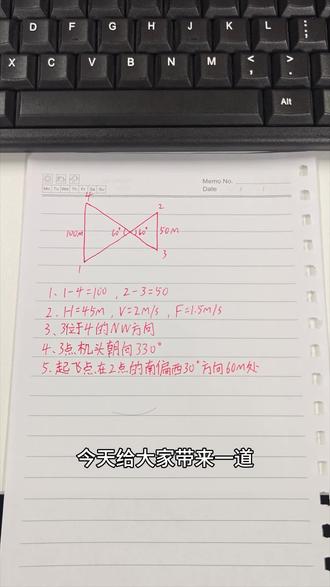 D F G H J K L
X C V B N M < , > .
Alt
Memo No.
Mo Tu We Th Fr Sa Su
Date / /
4
2
100M
60°
60°
50M
3
1
1、1-4=100 , 2-3=50
2、H=45M , V=2M/s , F=1.5M/s
3、3位于4的NW方向
4、3点机头朝向330°
5、起飞点在2点的南偏西30°方向60M处
今天给大家带来一道